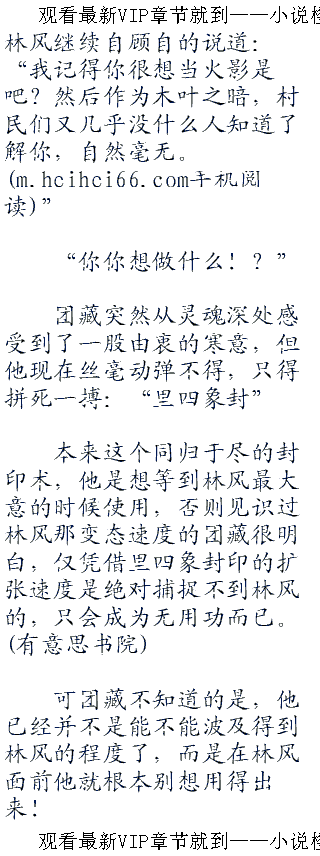 观看最新VIP章节就到——小说检
林风继续自顾自的说道：
“我记得你很想当火影是
吧？然后作为木叶之暗，村
民们又几乎没什么人知道了
解你，自然毫无。
(m.hcihci66.com手机阅
读)”
“你你想做什么！？”
团藏突然从灵魂深处感
受到了一股由衷的寒意，但
他现在丝毫动弹不得，只得
拼死一搏：“里四象封”
本来这个同归于尽的封
印术，他是想等到林风最大
意的时候使用，否则见识过
林风那变态速度的团藏很明
白，仅凭借里四象封印的扩
张速度是绝对捕捉不到林风
的，只会成为无用功而已。
(有意思书院)
可团藏不知道的是，他
已经并不是能不能波及得到
林风的程度了，而是在林风
面前他就根本别想用得出
来！
观看最新VIP章节就到——小说检